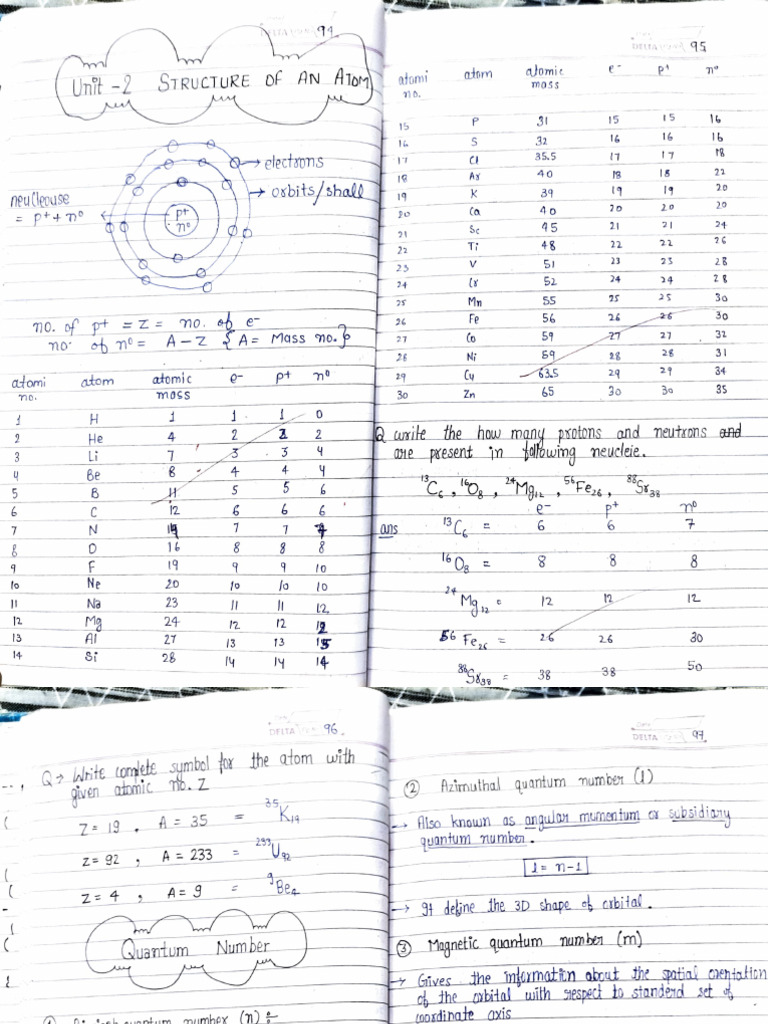 94
Unit -2 STRUCTURE OF AN ATOM
electrons
orbits/shall
neucleouse
= p+ + n°
p+
n°
no. of p+ = Z = no. of e-
no. of n° = A - Z {A = Mass no.}
atomi no. atom atomic mass e- p+ n°
1 H 1 1 1 0
2 He 4 2 2 2
3 Li 7 3 3 4
4 Be 8 4 4 4
5 B 11 5 5 6
6 C 12 6 6 6
7 N 14 7 7 7
8 O 16 8 8 8
9 F 19 9 9 10
10 Ne 20 10 10 10
11 Na 23 11 11 12
12 Mg 24 12 12 12
13 Al 27 13 13
14 Si 28 14 14 14
95
atomi no. atom atomic mass e- p+ n°
15 P 31 15 15 16
16 S 32 16 16 16
17 Cl 35.5 17 17 18
18 Ar 40 18 18 22
19 K 39 19 19 20
20 Ca 40 20 20 20
21 Sc 45 21 21 24
22 Ti 48 22 22 26
23 V 51 23 23 28
24 Cr 52 24 24 28
25 Mn 55 25 25 30
26 Fe 56 26 26 30
27 Co 59 27 27 32
28 Ni 59 28 28 31
29 Cu 63.5 29 29 34
30 Zn 65 30 30 35
Q write the how many protons and neutrons and
are present in following neucleie.
¹³C₆, ¹⁶O₈, ²⁴Mg₁₂, ⁵⁶Fe₂₆, ⁸⁸Sr₃₈
e- p+ n°
ans ¹³C₆ = 6 6 7
¹⁶O₈ = 8 8 8
²⁴Mg₁₂ = 12 12 12
⁵⁶Fe₂₆ = 26 26 30
⁸⁸Sr₃₈ = 38 38 50
DELTA 96
Q → Write complete symbol for the atom with
given atomic no. Z
Z = 19 , A = 35 = ³⁵K₁₉
Z = 92 , A = 233 = ²³³U₉₂
Z = 4 , A = 9 = ⁹Be₄
Quantum Number
quantum number (n)
DELTA 97
② Azimuthal quantum number (l)
→ Also known as angular mumentum or subsidiary
quantum number.
l = n-1
→ It define the 3D shape of orbital.
③ Magnetic quantum number (m)
→ Gives the information about the spatial orentation
of the orbital with respect to standerd set of
coordinate axis